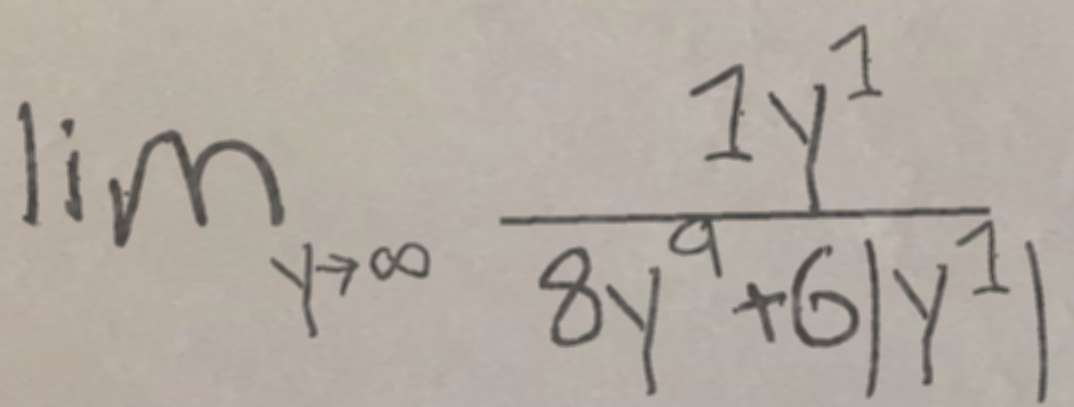 lim y→∞ 1y^1 / 8y^9+6|y^1|